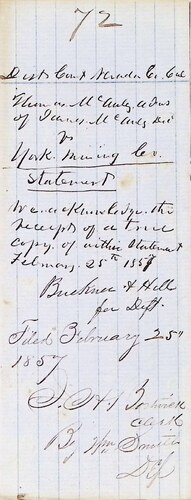 72
Dist Court Nevada Co. Cal
Thomas McAuly adms
of James McAuly
vs
York Mining Co.
Statement
We acknowledge the
receipt of a true
copy of within Statement
February 25th 1857
Buckner & Hill
for Deft
Filed February 25th
1857
Clerk
By Wm
Dep